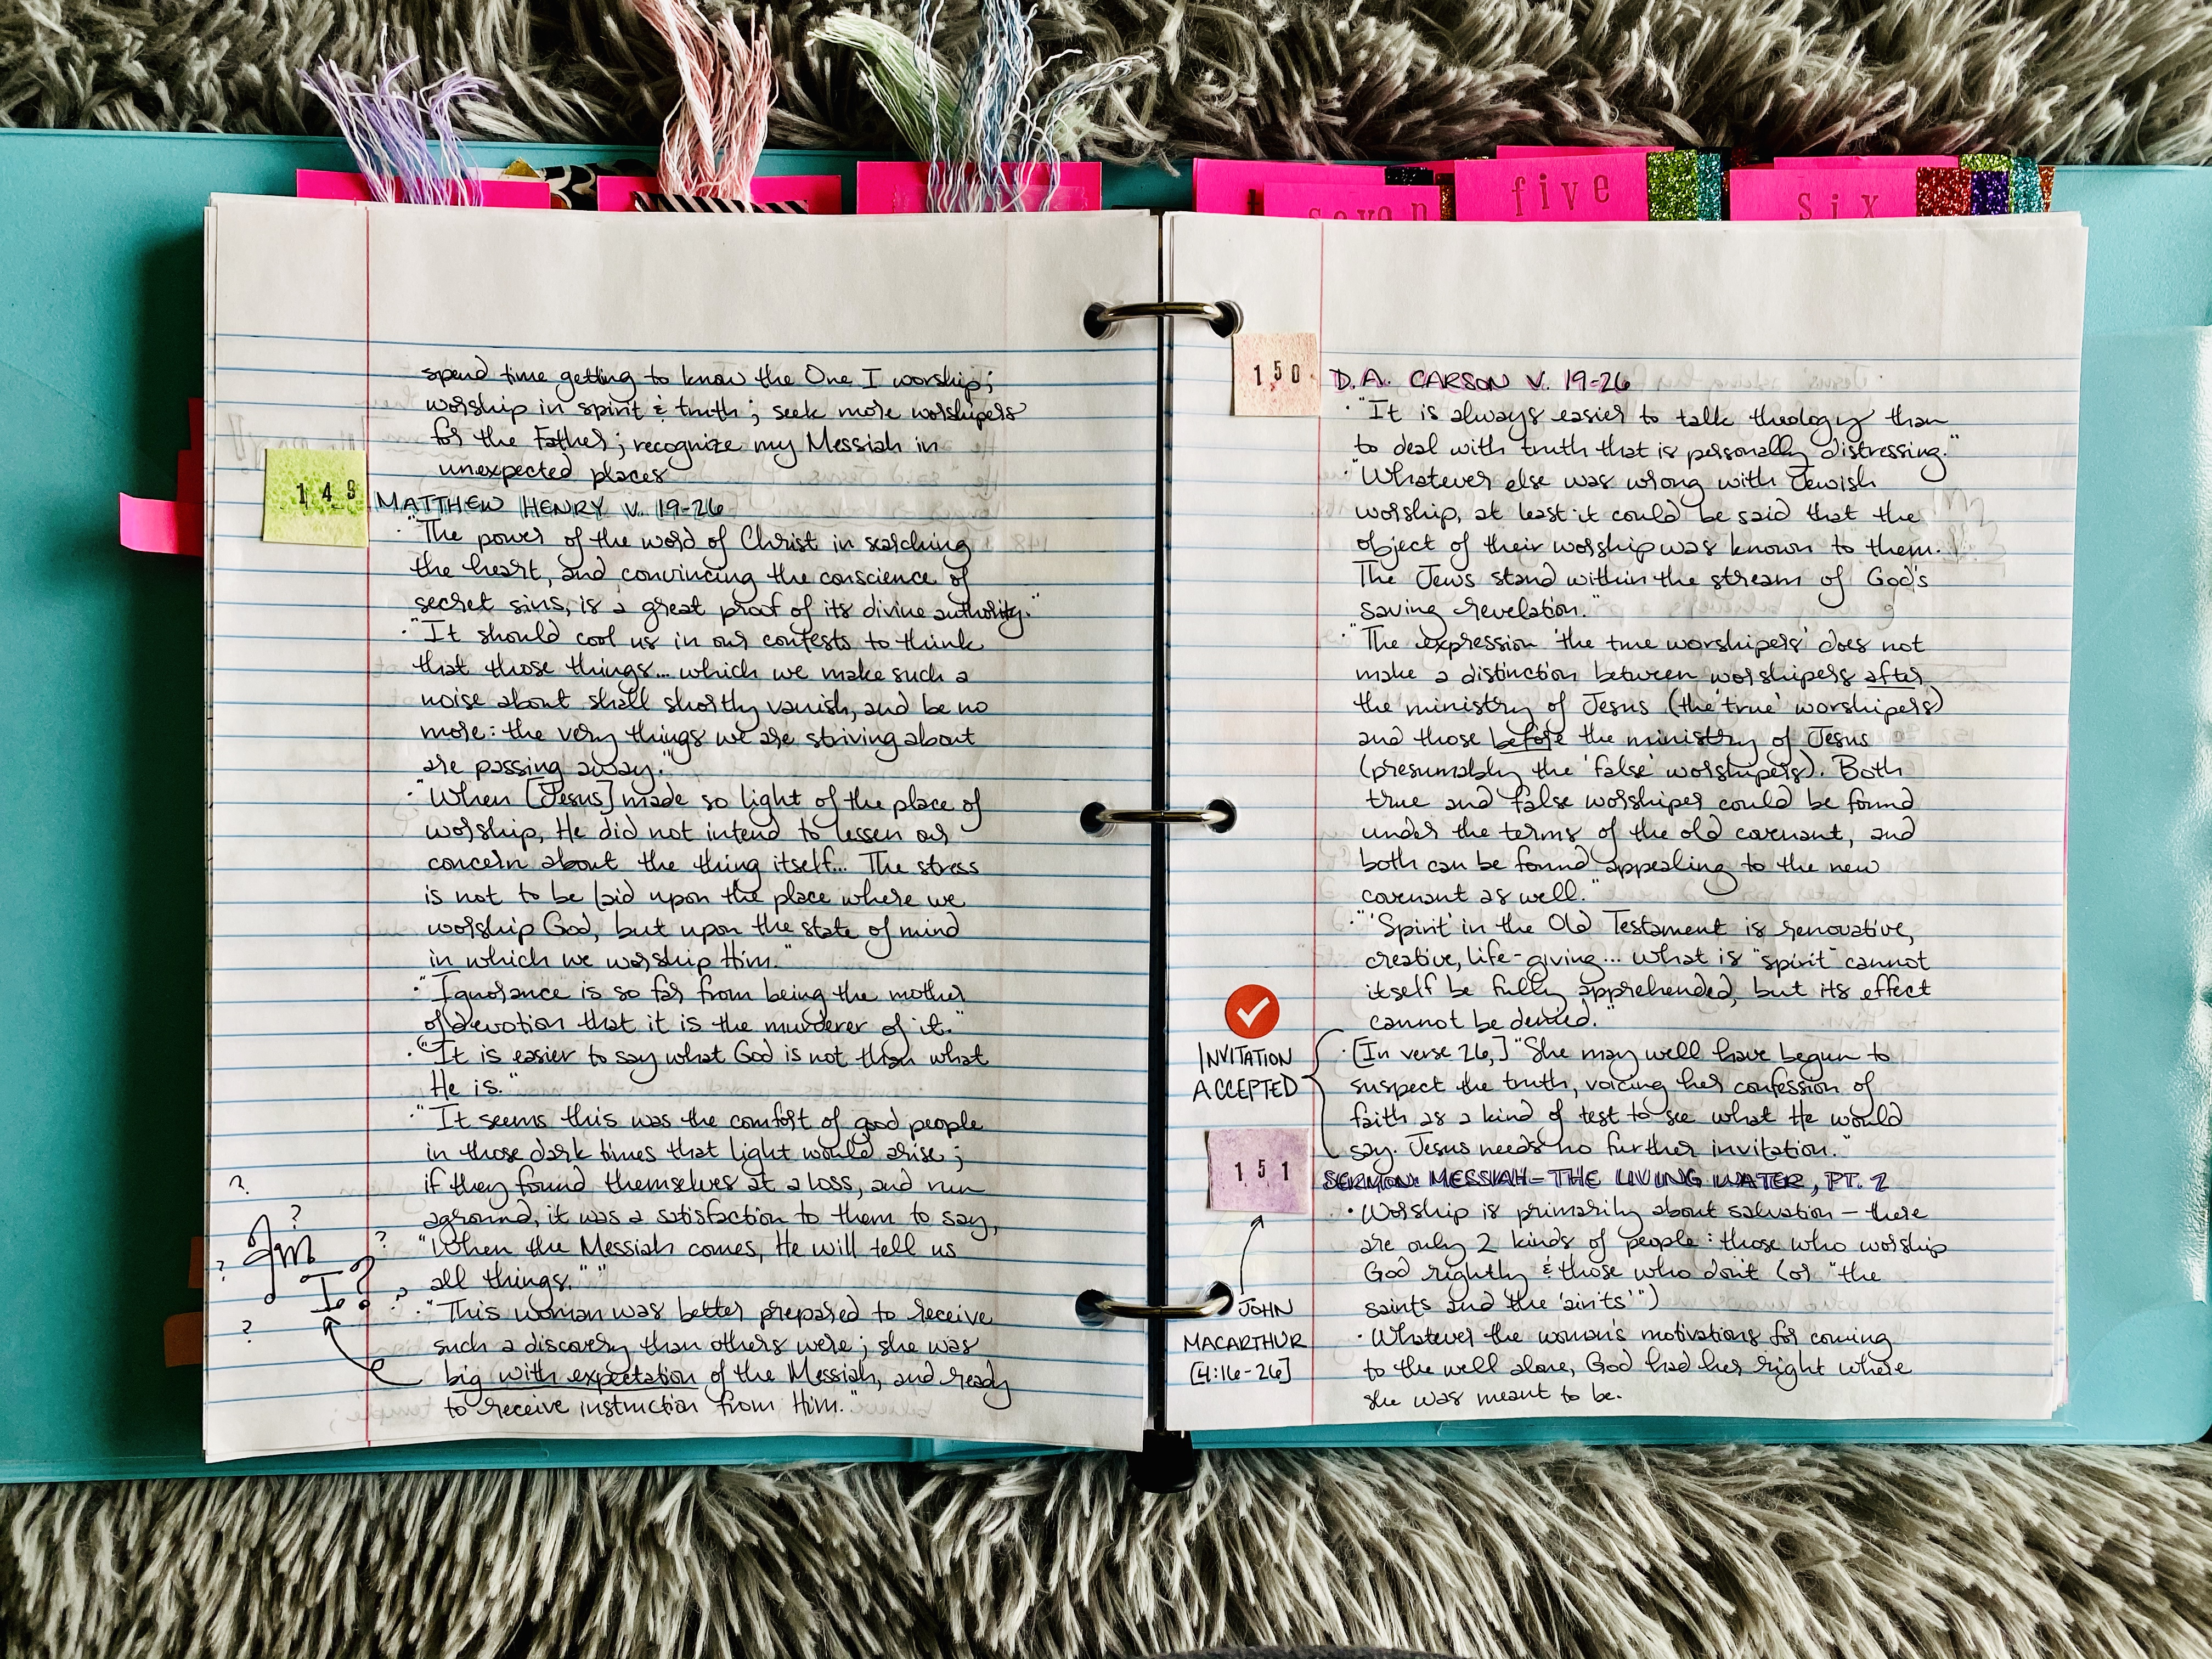 seven
five
six
spend time getting to know the One I worship;
worship in spirit & truth; seek more worshipers
for the Father; recognize my Messiah in
unexpected places
149
MATTHEW HENRY V. 19-26
· "The power of the word of Christ in searching
the heart, and convincing the conscience of
secret sins, is a great proof of its divine authority."
· "It should cool us in our contests to think
that those things... which we make such a
noise about shall shortly vanish, and be no
more: the very things we are striving about
are passing away."
· "When [Jesus] made so light of the place of
worship, He did not intend to lessen our
concern about the thing itself... The stress
is not to be laid upon the place where we
worship God, but upon the state of mind
in which we worship Him."
· "Ignorance is so far from being the mother
of devotion that it is the murderer of it."
· "It is easier to say what God is not than what
He is."
· "It seems this was the comfort of good people
in those dark times that light would arise;
if they found themselves at a loss, and run
aground, it was a satisfaction to them to say,
"When the Messiah comes, He will tell us
all things.""
· "This woman was better prepared to receive
such a discovery than others were; she was
big with expectation of the Messiah, and ready
to receive instruction from Him."
? ? ? ? ? ?
Am
I?
150
D.A. CARSON V. 19-26
· "It is always easier to talk theology than
to deal with truth that is personally distressing."
· "Whatever else was wrong with Jewish
worship, at least it could be said that the
object of their worship was known to them.
The Jews stand within the stream of God's
saving revelation."
· "The expression 'the true worshipers' does not
make a distinction between worshipers after
the ministry of Jesus (the 'true' worshipers)
and those before the ministry of Jesus
(presumably the 'false' worshipers). Both
true and false worshiper could be found
under the terms of the old covenant, and
both can be found appealing to the new
covenant as well."
· "'Spirit' in the Old Testament is renovative,
creative, life-giving... What is "spirit" cannot
itself be fully apprehended, but its effect
cannot be denied."
INVITATION
ACCEPTED
· [In verse 26,] "She may well have begun to
suspect the truth, voicing her confession of
faith as a kind of test to see what He would
say. Jesus needs no further invitation."
151
SERMON: MESSIAH - THE LIVING WATER, PT. 2
· Worship is primarily about salvation - there
are only 2 kinds of people: those who worship
God rightly & those who don't (or "the
saints and the 'aints'")
· Whatever the woman's motivations for coming
to the well alone, God had her right where
she was meant to be.
JOHN
MACARTHUR
[4:16-26]